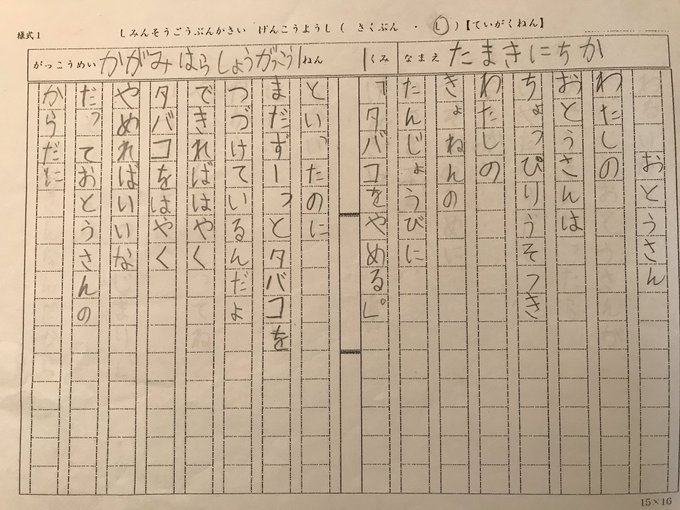 様式1
しみんそうごうぶんかさい げんこうようし( さくぶん ・ し )【ていがくねん】
がっこうめい かがみはらしょうがっこう 1ねん 1くみ なまえ たまきにちか
おとうさん
わたしの
おとうさんは
ちょっぴりうそつき
わたしの
きょねんの
たんじょうびに
「タバコをやめる」。
といったのに
まだずーっとタバコを
つづけているんだよ
できればはやく
タバコをはやく
やめればいいな
だっておとうさんの
からだに
15×16